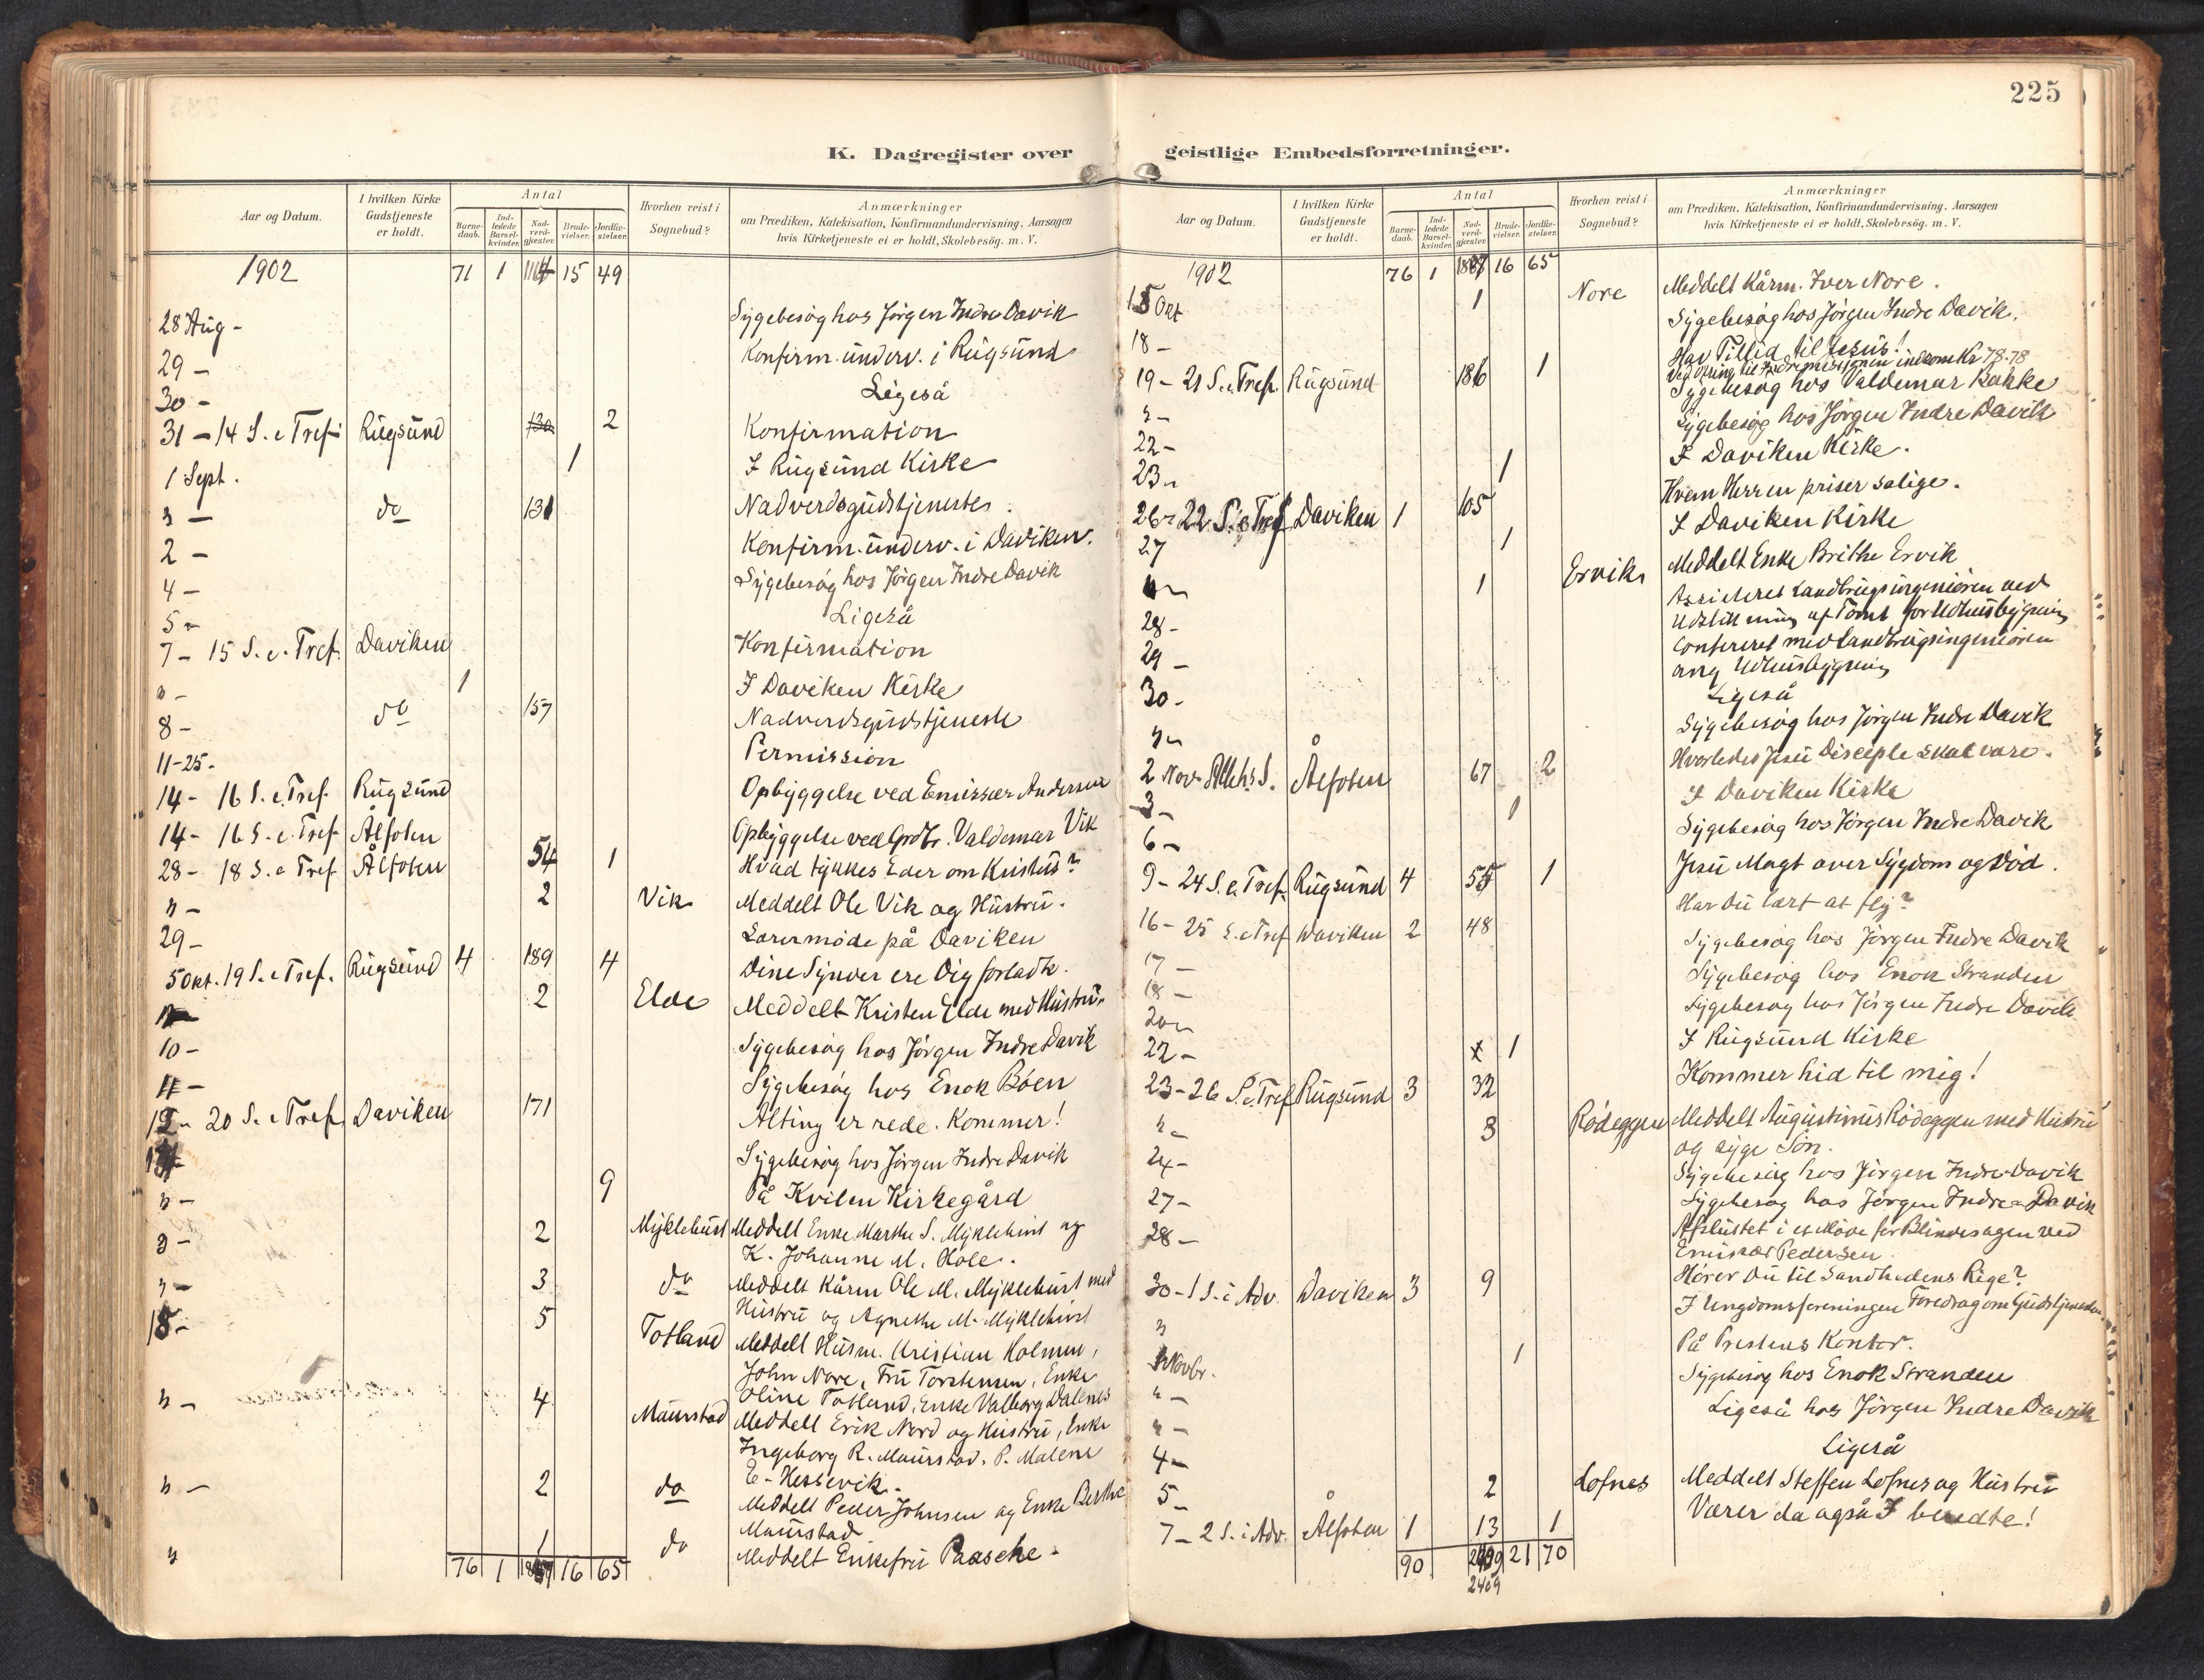 225
K. Dagregister over
geistlige Embedsforretninger.
Aar og Datum.
I hvilken Kirke Gudstjeneste er holdt.
Antal
Barne-daab.
Ind-ledede Barsel-kvinder.
Nad-verd-gjæster.
Brude-vielser.
Jordfæ-stelser.
Hvorhen reist i Sognebud?
Anmærkninger
om Prædiken, Katekisation, Konfirmandundervisning, Aarsagen
hvis Kirketjeneste ei er holdt, Skolebesög. m. V.
1902 71 1 15 49
28 Aug - Sygebesøg hos Jørgen Indre Davik
29 - Konfirm. underv. i Rugsund
30 - Ligeså
31 - 14 S. e Tref. Rugsund 130 2 Konfirmation
1 Sept. 1 I Rugsund Kirke
" - do 131 Nadverdsgudstjeneste.
2 - Konfirm. underv. i Daviken.
4 - Sygebesøg hos Jørgen Indre Davik
5 " Ligeså
7 - 15 S. e. Tref. Daviken Konfirmation
" - 1 I Daviken Kirke
8 - do 157 Nadverdsgudstjeneste
11-25. Permission
14 - 16 S. e. Tref. Rugsund Opbyggelse ved Emissær Andersen
14 - 16 S. e. Tref Ålfoten Opbyggelse ved Grdbr. Valdemar Vik
28 - 18 S. e Tref Ålfoten 54 1 Hvad tykkes Eder om Kristus?
" - 2 Vik Meddelt Ole Vik og Hustru.
29 - Lærermøde på Daviken
5 Okt. 19 S. e Tref. Rugsund 4 189 4 Dine Synder ere Dig forladte.
2 Elde Meddelt Kristen Elde med Hustru.
10 - Sygebesøg hos Jørgen Indre Davik
11 - Sygebesøg hos Enok Bøen
12 " 20 S. e Tref Daviken 171 Alting er rede. Kommer!
Sygebesøg hos Jørgen Indre Davik
" - 9 På Kvilen Kirkegård
" - 2 Myklebust Meddelt Enke Marthe S. Myklebust og
K. Johanne M. Hole.
" - 3 do Meddelt Kårm Ole M. Myklebust med
Hustru og Agnethe M. Myklebust
15 - 5 Totland Meddelt Husm. Kristian Holmen,
John Nore, Fru Torstensen, Enke
Oline Totland, Enke Valborg Dalenes
" - 4 Maurstad Meddelt Erik Nord og Hustru, Enke
Ingeborg R. Maurstad. P. Malene
E. Hessevik.
" - 2 do Meddelt Peder Johnsen og Enke Berthe
Maurstad
" 1 do Meddelt Enkefru Paasche.
76 1 16 65
Aar og Datum.
I hvilken Kirke Gudstjeneste er holdt.
Antal
Barne-daab.
Ind-ledede Barsel-kvinder.
Nad-verd-gjæster.
Brude-vielser.
Jordfæ-stelser.
Hvorhen reist i Sognebud?
Anmærkninger
om Prædiken, Katekisation, Konfirmandundervisning, Aarsagen
hvis Kirketjeneste ei er holdt, Skolebesög. m. V.
1902 76 1 16 65
15 Okt 1 Nore Meddelt Kårm. Iver Nore.
18 - Sygebesøg hos Jørgen Indre Davik.
19 - 21 S. e Tref. Rugsund 186 1 Hav Tillid til Jesus!
Ved Ofring til Indremissionen indkom Kr 78.78
" - Sygebesøg hos Valdemar Bakke
22 - Sygebesøg hos Jørgen Indre Davik
23 " 1 I Daviken Kirke.
26 - 22 S. e Tref Daviken 1 105 Hvem Herren priser salige.
27 1 I Daviken Kirke
" 1 Ervik Meddelt Enke Brithe Ervik
28 - Assisteret Landbrugsingeniøren ved
Udstikning af Tomt for Udhusbygning
29 - Confereret med Landbrugsingeniøren
ang Udhusbygning
30 - Ligeså
" - Sygebesøg hos Jørgen Indre Davik
2 Nov. Allehs S. Ålfoten 67 2 Hvorledes Jesu Disciple skal være.
3 - 1 I Daviken Kirke
6 - Sygebesøg hos Jørgen Indre Davik
9 - 24 S. e. Tref. Rugsund 4 55 1 Jesu Magt over Sygdom og Død.
16 - 25 S. e Tref Daviken 2 48 Har Du lært at fly?
17 - Sygebesøg hos Jørgen Indre Davik
18 - Sygebesøg hos Enok Stranden
20 " Sygebesøg hos Jørgen Indre Davik
22 - 1 I Rugsund Kirke
23 - 26 S. e. Tref Rugsund 3 32 Kommer hid til mig!
" - 3 Rødeggen Meddelt Augustinus Rødeggen med Hustru
og syge Søn.
24 - Sygebesøg hos Jørgen Indre Davik
27 - Sygebesøg hos Jørgen Indre Davik
28 - Afsluttet i et Møde for Blindesagen ved
Emissær Pedersen.
30 - 1 S. i Adv. Daviken 3 9 Hører Du til Sandhedens Rige?
" I Ungdomsforeningen Foredrag om Gudstjenesten
1 På Prestens Kontor.
" - Sygebesøg hos Enok Stranden
" - Ligeså hos Jørgen Indre Davik
4 - Ligeså
5 - 2 Lofnes Meddelt Steffen Lofnes og Hustru
7 - 2 S. i Adv. Ålfoten 1 13 1 Værer da også I beredte!
90 21 70
2409